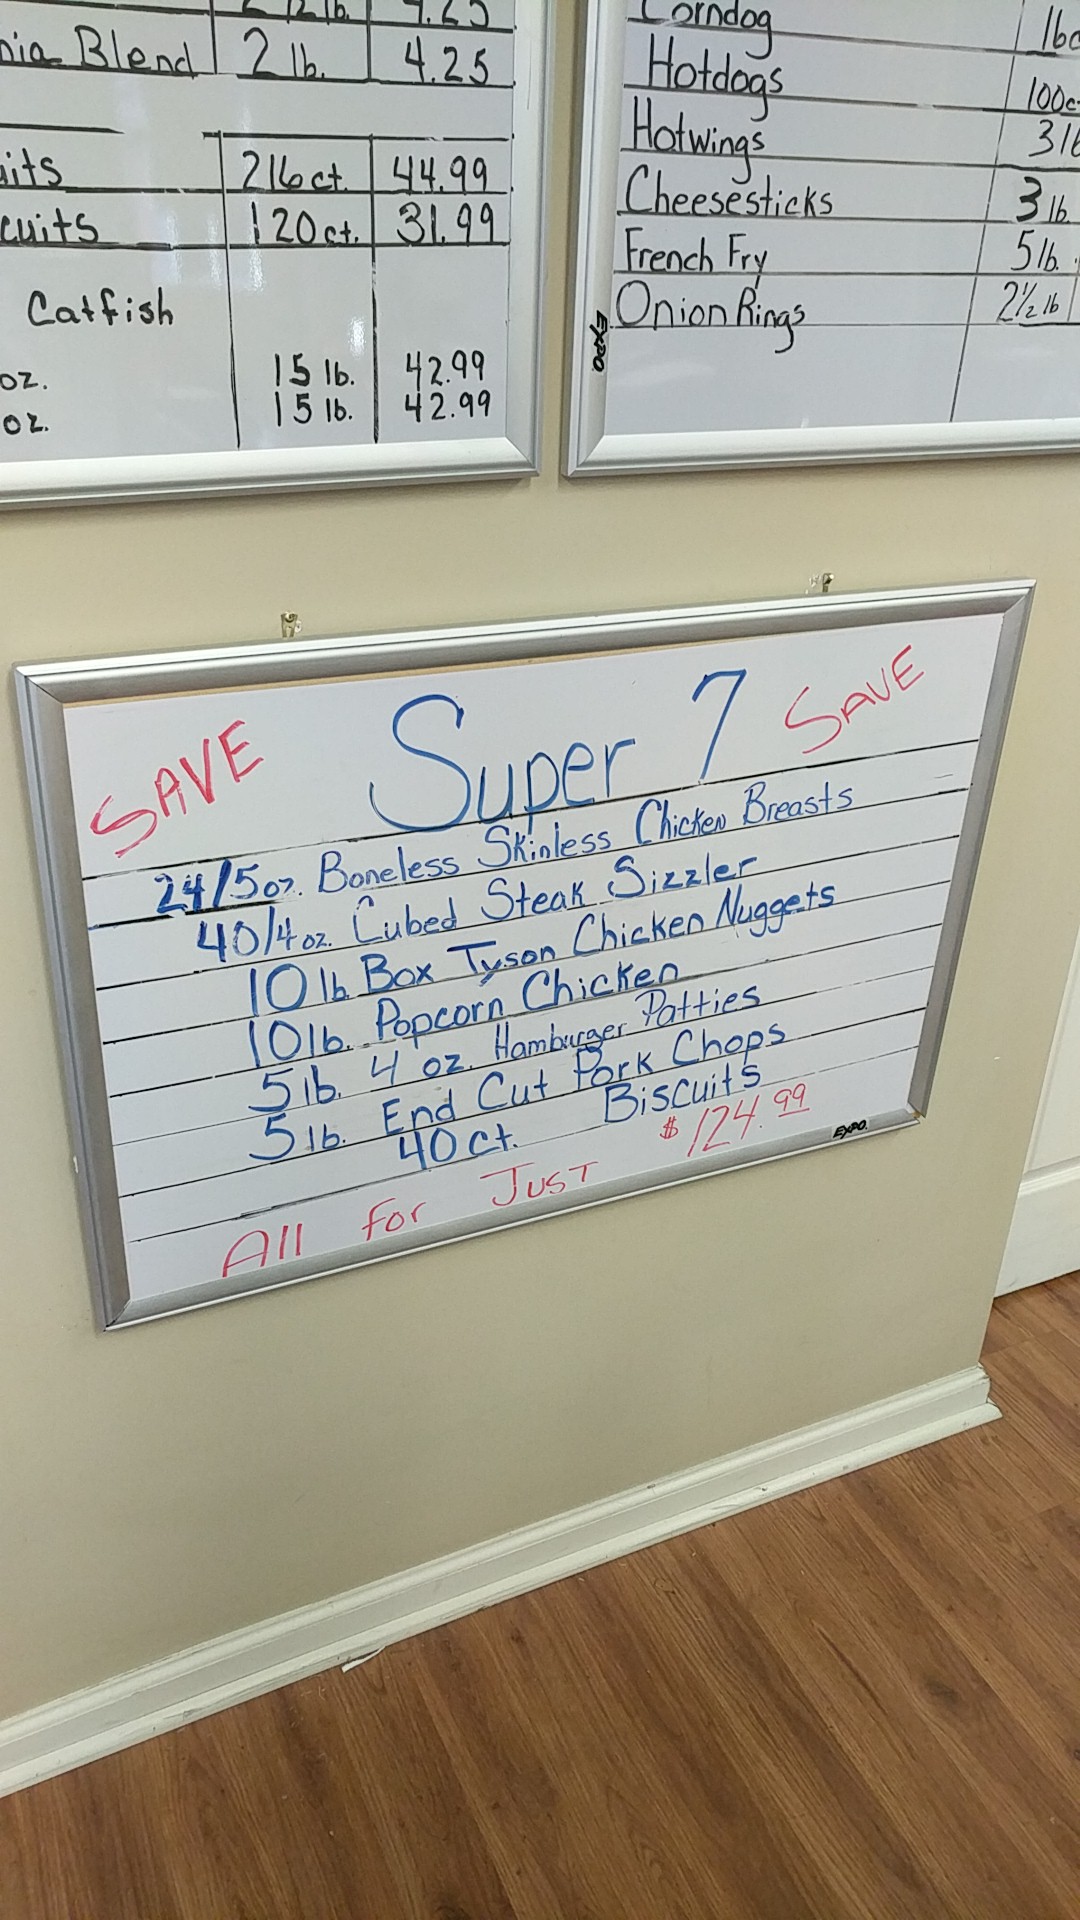 2 lb. 4.25
Blend 2 lb. 4.25
216 ct. 44.99
120 ct. 31.99
Catfish
oz. 15 lb. 42.99
oz. 15 lb. 42.99
Corndog
Hotdogs 100c
Hotwings 3 lb
Cheesesticks 3 lb.
French Fry 5 lb.
Onion Rings 2½ lb
EXPO
SAVE Super 7 SAVE
24/5oz. Boneless Skinless Chicken Breasts
40/4oz. Cubed Steak Sizzler
10 lb. Box Tyson Chicken Nuggets
10 lb. Popcorn Chicken
5 lb. 4 oz. Hamburger Patties
5 lb. End Cut Pork Chops
40 ct. Biscuits
All for Just $124.99
EXPO